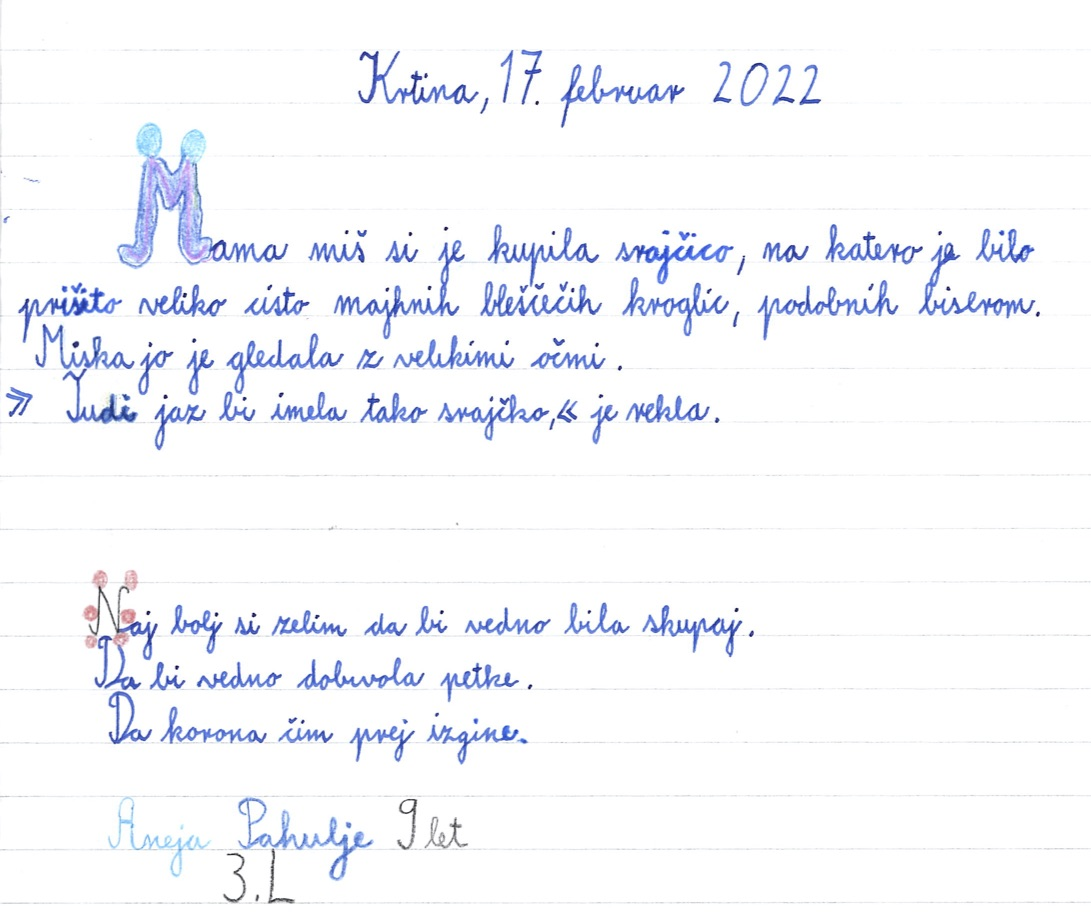 Krtina, 17. februar 2022
Mama miš si je kupila srajčico, na katero je bilo
prišito veliko cisto majhnih bleščečih kroglic, podobnih biserom.
Miska jo je gledala z velikimi očmi.
» Tudi jaz bi imela tako srajčko,« je rekla.
Naj bolj si zelim da bi vedno bila skupaj.
Da bi vedno dobivala petke.
Da korona čim prej izgine.
Aneja Pahulje 9 let
3.L